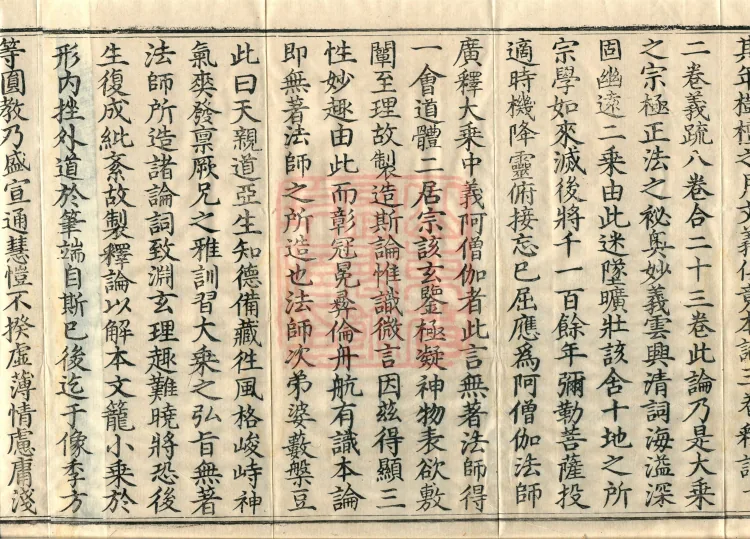 二卷義疏八卷合二十三卷此論乃是大乘
之宗極正法之祕奧妙義雲興清詞海溢深
固幽遠二乘由此迷墜曠壯該含十地之所
宗學如來滅後將千一百餘年彌勒菩薩投
適時機降靈俯接忘已屈應為阿僧伽法師
廣釋大乘中義阿僧伽者此言無著法師得
一會道體二居宗該玄鑒極凝神物表欲敷
闡至理故製造斯論惟識微言因茲得顯三
性妙趣由此而彰冠冕彝倫舟航有識本論
即無著法師之所造也法師次弟婆藪槃豆
此曰天親道亞生知德備藏往風格峻峙神
氣爽發禀厥兄之雅訓習大乘之弘旨無著
法師所造諸論詞致淵玄理趣難曉將恐後
生復成紕紊故製釋論以解本文籠小乘於
形內挫外道於筆端自斯已後迄于像季方
等圓教乃盛宣通慧愷不揆虛薄情慮庸淺